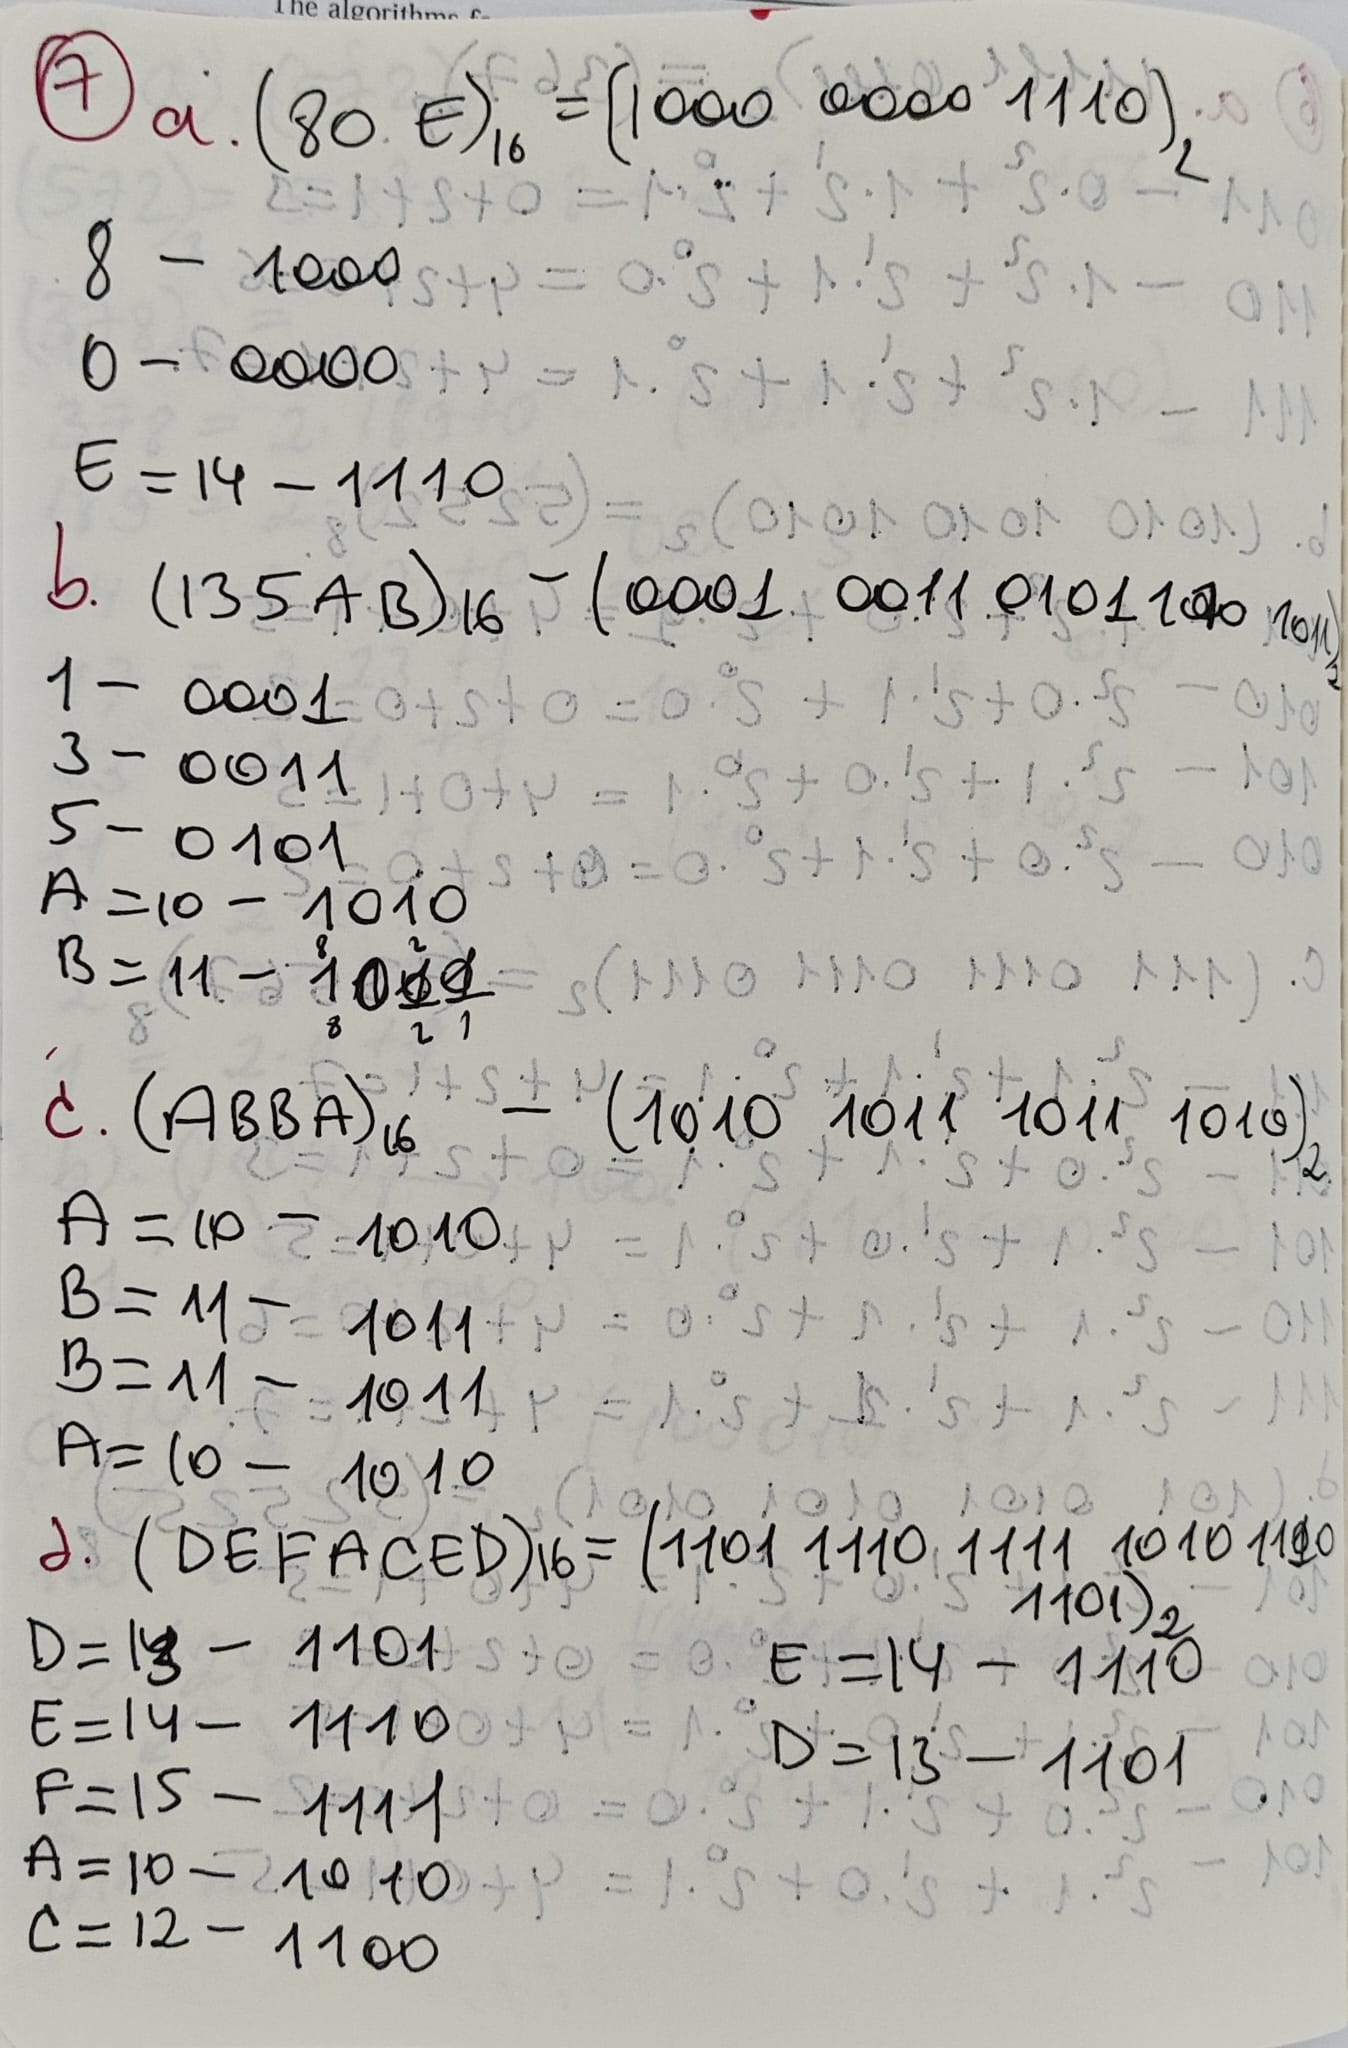 The algorithms f
7 a. (80 E)16 = (1000 0000 1110)2
8 - 1000
0 - 0000
E = 14 - 1110
b. (135AB)16 - (0001 0011 0101 1010 1011)2
1 - 0001
3 - 0011
5 - 0101
A = 10 - 1010
8 2
B = 11 - 1011
8 2 1
c. (ABBA)16 - (1010 1011 1011 1010)2
A = 10 - 1010
B = 11 - 1011
B = 11 - 1011
A = 10 - 1010
d. (DEFACED)16 = (1101 1110 1111 1010 1100
1101)2
D = 13 - 1101 E = 14 - 1110
E = 14 - 1110
D = 13 - 1101
F = 15 - 1111
A = 10 - 1010
C = 12 - 1100